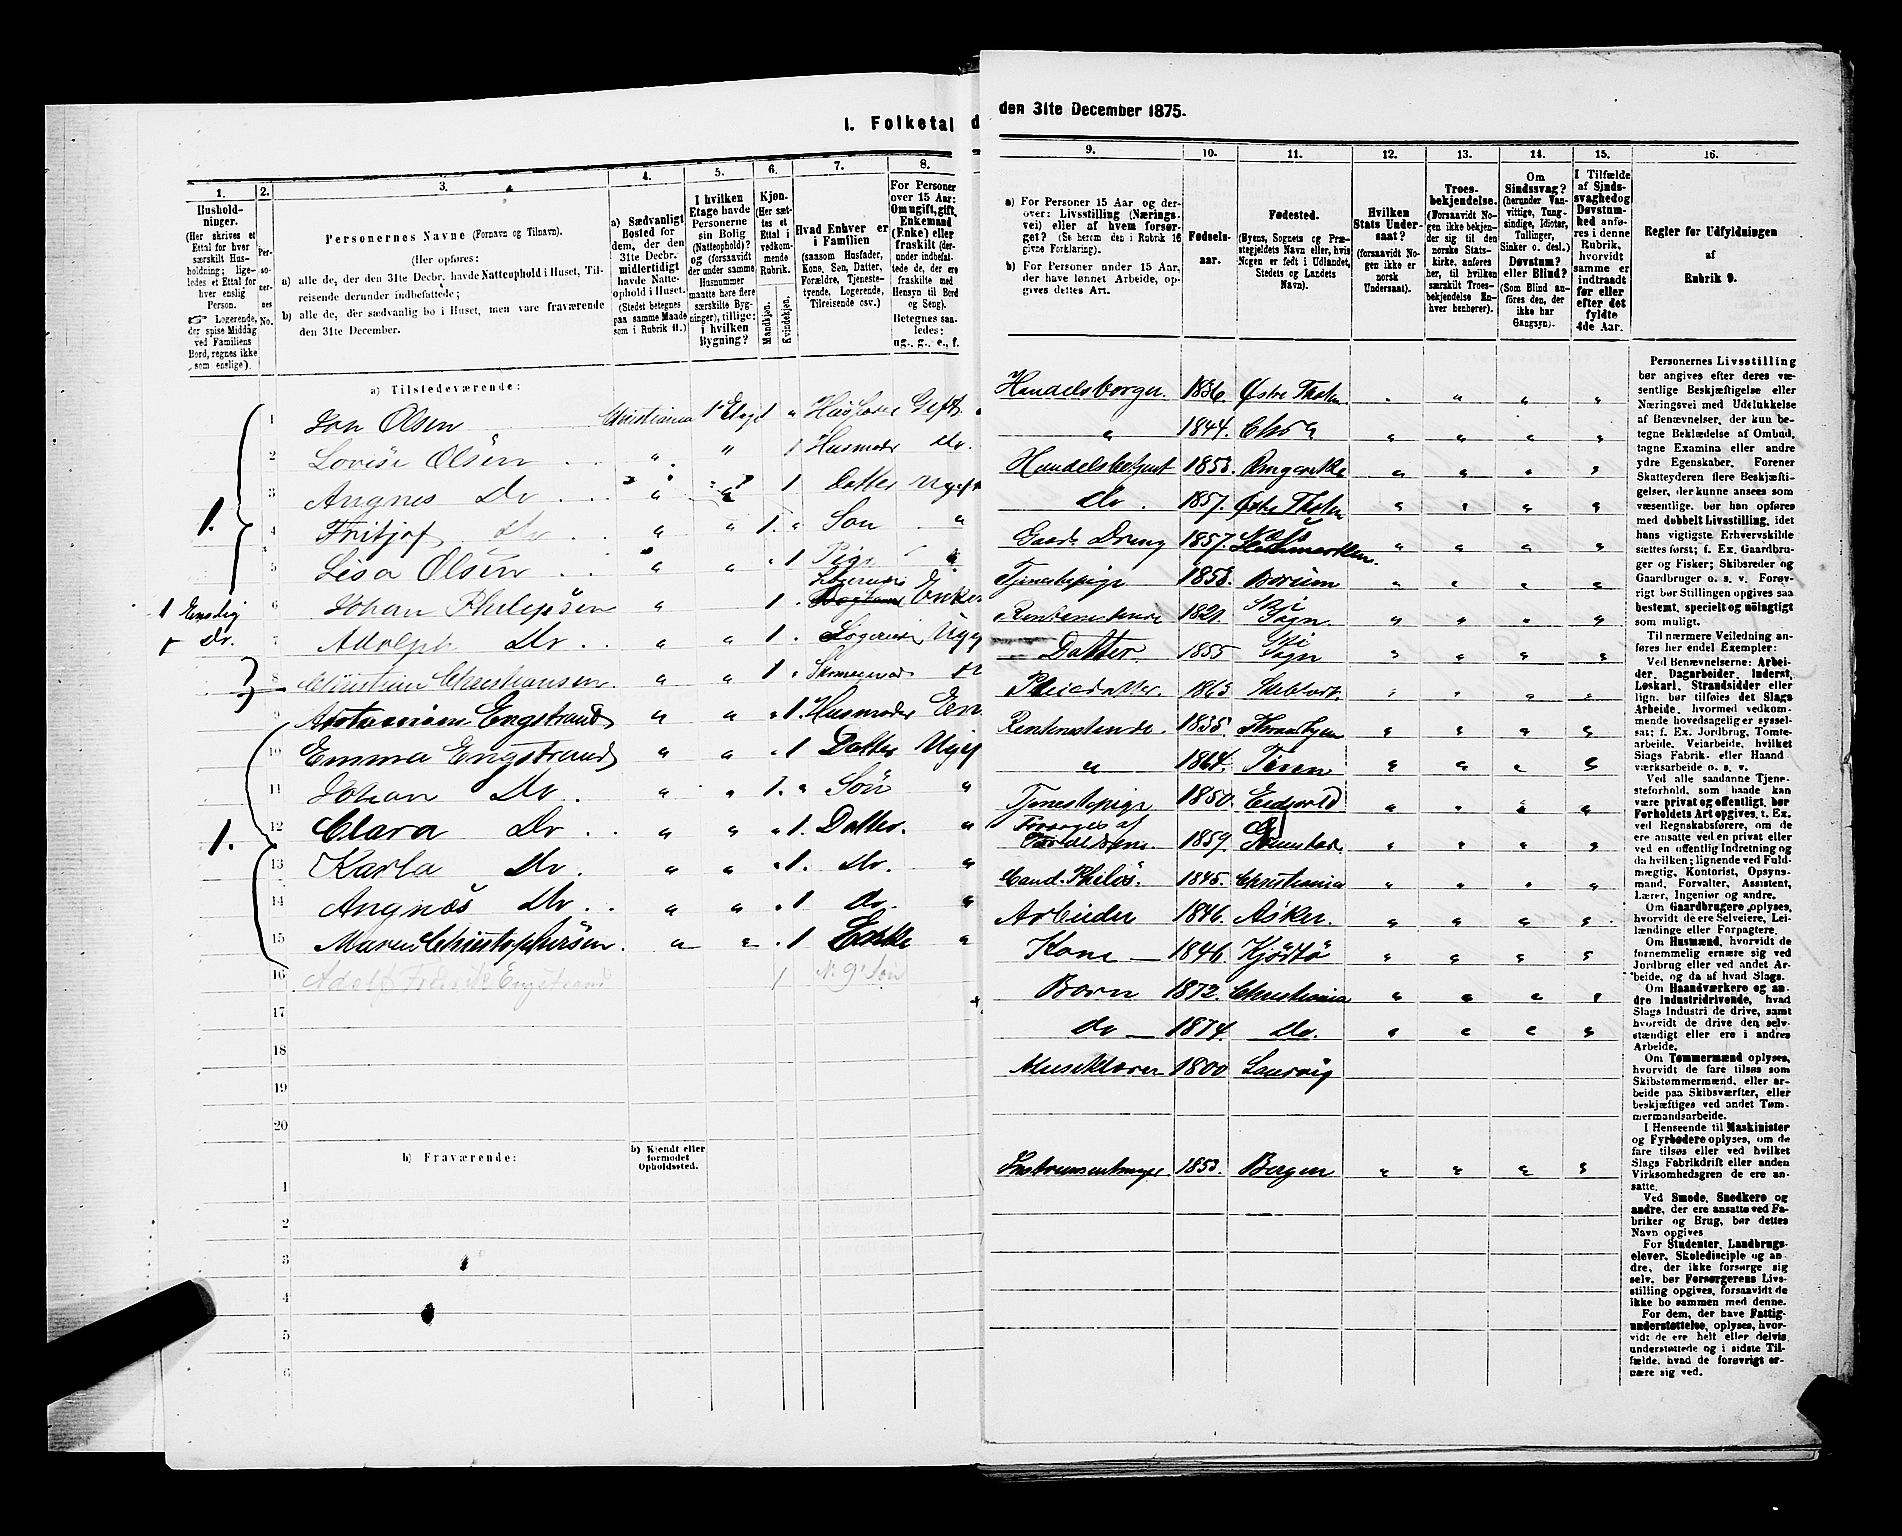 I. Folketal d
1.
2.
3.
4.
5.
6.
7.
8.
Hushold-
ninger.
(Her skrives et
Ettal for hver
særskilt Hus-
holdning; lige-
ledes et Ettal for
hver enslig
Person.
Logerende,
der spise Middag
ved Familiens
Bord, regnes ikke
som enslige).
Per-
so-
ner-
nes
No.
Personernes Navne (Fornavn og Tilnavn).
(Her opføres:
a) alle de, der den 31te Decbr. havde Natteophold i Huset, Til-
reisende derunder indbefattede;
b) alle de, der sædvanlig bo i Huset, men vare fraværende
den 31te December.
a) Sædvanligt
Bosted for
dem, der den
31te Decbr.
midlertidigt
havde Natte-
ophold i Huset.
(Stedet betegnes
paa samme Maade
som i Rubrik 11.)
I hvilken
Etage havde
Personerne
sin Bolig
(Natteophold)?
og (forsaavidt
der under samme
Husnummer
maatte høre flere
særskilte Byg-
ninger), tillige:
i hvilken
Bygning?
Kjøn.
(Her sæt-
tes et
Ettal i
vedkom-
mende
Rubrik.)
Mandkjøn.
Kvindekjøn.
Hvad Enhver er
i Familien
(saasom Husfader,
Kone, Søn, Datter,
Forældre, Tjeneste-
tyende, Logerende,
Tilreisende osv.)
For Personer
over 15 Aar:
Om ugift, gift,
Enkemand
(Enke) eller
fraskilt (der-
under indbefat-
tede de, der ere
fraskilte med
Hensyn til Bord
og Seng).
Betegnes saa-
ledes:
ug., g., e., f.
a) Tilstedeværende:
1 Jon Olsen Christiania 1e Etage 1 " Husfader Gift
2 Lovise Olsen " " 1 Husmoder Do.
3 Angnes Do " " 1 Datter Ugift
1. 4 Fritjof do " " 1. " Søn "
5 Lisa Olsen " " " 1 Pige "
1 Enslig 6 Johan Philipsen " 1 Logerende Enke
1 Do. 7 Adolph Do " " 1 . Logerende Ug
8 Christian Christiansen " " 1
9 Engstrand " " " 1. Husmoder En
10 Emma Engstrand " " " 1 Datter Ugif
11 Johan Do. " " 1. " Søn "
1. 12 Clara Do " " " 1. Datter. "
13 Karla Do. " " " 1. Do. "
14 Angnes Do. " " " 1 do. "
15 Maren Christophersen. " " . 1 Enke "
16 Adolf Fredrik Engstrand 1 N. 9s Søn
17
18
19
20
b) Fraværende:
b) Kjendt eller
formodet
Opholdssted.
1
2
3
4
5
6
den 31te December 1875.
9.
10.
11.
12.
13.
14.
15.
16.
a) For Personer 15 Aar og der-
over: Livsstilling (Nærings-
vei) eller af hvem forsør-
get? (Se herom den i Rubrik 16
givne Forklaring).
b) For Personer under 15 Aar,
der have lønnet Arbeide, op-
gives dettes Art.
Fødsels-
aar.
Fødested.
(Byens, Sognets og Præ-
stegjeldets Navn eller, hvis
Nogen er født i Udlandet,
Stedets og Landets
Navn).
Hvilken
Stats Under-
saat?
(forsaavidt No-
gen ikke er
norsk
Undersaat).
Troes-
bekjendelse.
(Forsaavidt No-
gen ikke bekjen-
der sig til den
norske Stats-
kirke, anføres
her, til hvilken
særskilt Troes-
bekjendelse En-
hver henhører).
Om
Sindssvag?
(herunder Van-
vittige, Tung-
sindige, Idioter,
Tullinger,
Sinker o. desl.)
Døvstum?
eller Blind?
(Som Blind an-
føres den, der
ikke har
Gangsyn).
I Tilfælde
af Sinds-
svaghed og
Døvstum-
hed anfø-
res i denne
Rubrik,
hvorvidt
samme er
indtraadt
før eller
efter det
fyldte
4de Aar.
Regler for Udfyldningen
af
Rubrik 9.
Handelsborger. 1836. Østre Thoten
" 1844. Chr a
Handelsbetjent 1853. Ringerike
do. 1857. Østre Thoten
Gaards Dreng 1857.
Tjenestepige 1853. Borum
Rentenerende 1821. Ski Sogn
Datter. 1855 Ski Sogn
Pleiedatter. 1863
Rentenerende. 1835.
" 1864.
Tjenestepige 1850. Eidsvold
Forsørges af Forældrene 1859.
Cand. Philos. 1845. Christiania
Arbeider 1846. Asker.
Kone 1846.
Børn 1872. Christiania
do 1874. Do.
Musiklærer 1800 Laurvig
Instrumentmager 1853. Bergen
Personernes Livsstilling
bør angives efter deres væ-
sentlige Beskjæftigelse eller
Næringsvei med Udelukkelse
af Benævnelser, der kun be-
tegne Beklædelse af Ombud,
tagne Examina eller andre
ydre Egenskaber. Forener
Skatteyderen flere Beskjæfti-
gelser, der kunne ansees som
væsentlige, bør han opføres
med dobbelt Livsstilling, idet
hans vigtigste Erhvervskilde
sættes først; f. Ex. Gaardbru-
ger og Fisker; Skibsreder og
Gaardbruger o. s. v. Forøv-
rigt bør Stillingen opgives saa
bestemt, specielt og nøiagtigt
som muligt.
Til nærmere Veiledning an-
føres her endel Exempler:
Ved Benævnelserne: Arbei-
der, Dagarbeider, Inderst,
Løskarl, Strandsidder eller
lign. bør tilføies det Slags
Arbeide, hvormed vedkom-
mende hovedsagelig er syssel-
sat; f. Ex. Jordbrug, Tomte-
arbeide, Veiarbeide, hvilket
Slags Fabrik- eller Haand-
værksarbeide o. s. v.
Ved alle saadanne Tjene-
steforhold, som baade kan
være privat og offentligt, bør
Forholdets Art opgives, t. Ex.
ved Regnskabsførere, om de
ere ansatte ved en privat eller
ved en offentlig Indretning og
da hvilken; lignende ved Fuld-
mægtig, Kontorist, Opsyns-
mand, Forvalter, Assistent,
Lærer, Ingeniør og andre.
Om Gaardbrugere oplyses,
hvorvidt de ere Selveiere, Lei-
lændinge eller Forpagtere.
Om Husmænd, hvorvidt de
fornemmelig ernære sig ved
Jordbrug eller ved andet Ar-
beide, og da af hvad Slags.
Om Haandværkere og an-
dre Industridrivende, hvad
Slags Industri de drive, samt
hvorvidt de drive den selv-
stændigt eller ere i andres
Arbeide.
Om Tømmermænd oplyses,
hvorvidt de fare tilsøs som
Skibstømmermænd, eller ar-
beide paa Skibsværfter, eller
beskjæftiges ved andet Tøm-
mermandsarbeide.
I Henseende til Maskinister
og Fyrbødere oplyses, om de
fare tilsøs eller ved hvilket
Slags Fabrikdrift eller anden
Virksomhedsgren de ere an-
satte.
Ved Smede, Snedkere og
andre, der ere ansatte ved Fa-
briker og Brug, bør dettes
Navn opgives
For Studenter, Landbrugs-
elever, Skoledisciple og an-
dre, der ikke forsørge sig
selv, bør Forsørgerens Livs-
stilling opgives, forsaavidt de
ikke bo sammen med denne.
For dem, der have Fattig-
understøttelse, oplyses, hvor-
vidt de ere helt eller delvis
understøttede og i sidste Til-
fælde, hvad de forøvrigt er-
nære sig ved.